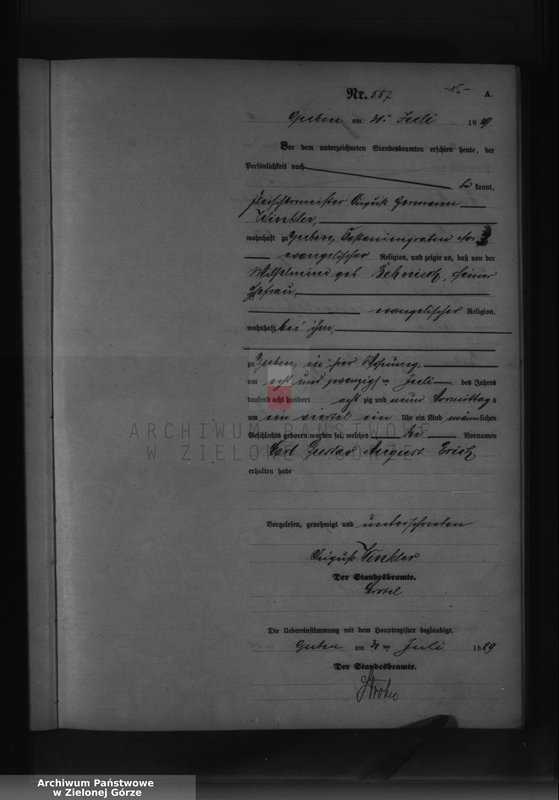 Nr. 557. -15- A.
Guben am 31. Juli 1889
Vor dem unterzeichneten Standesbeamten erschien heute, der
Persönlichkeit nach
be kannt,
August Hermann
Winkler,
wohnhaft zu Guben, Kastaniengraben No. 3
evangelischer Religion, und zeigte an, daß von der
Wilhelmine geb. seiner
Ehefrau,
evangelischer Religion,
wohnhaft bei ihm,
zu Guben, in ihrer Wohnung
am acht und zwanzigsten Juli des Jahres
tausend acht hundert acht zig und neun Vormittags
um ein viertel ein Uhr ein Kind männlichen
Geschlechts geboren worden sei, welches die Vornamen
Carl Gustav August Erich
erhalten habe
Vorgelesen, genehmigt und unterschrieben
August Winkler
Der Standesbeamte.
Die Uebereinstimmung mit dem Hauptregister beglaubigt.
Guben am 31. Juli 1889
Der Standesbeamte.
ARCHIWUM PAŃSTWOWE
W ZIELONEJ GÓRZE
Archiwum Państwowe
w Zielonej Górze